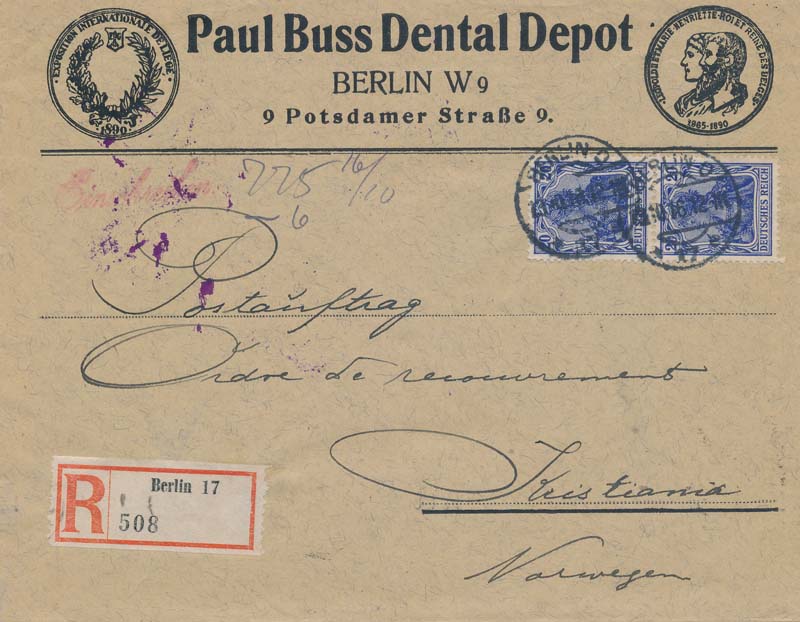 EXPOSITION INTERNATIONALE DE LIÈGE
1890
Paul Buss Dental Depot
BERLIN W 9
9 Potsdamer Straße 9.
LEOPOLD II MARIE-HENRIETTE-ROI ET REINE DES BELGES
1865-1890
Einschreiben
225 16/10
- 6
BERLIN O
17
BERLIN O
17
20
DEUTSCHES REICH
20
DEUTSCHES REICH
Postauftrag
Ordre de recouvrement
Kristiania
Norwegen
R
Berlin 17
508